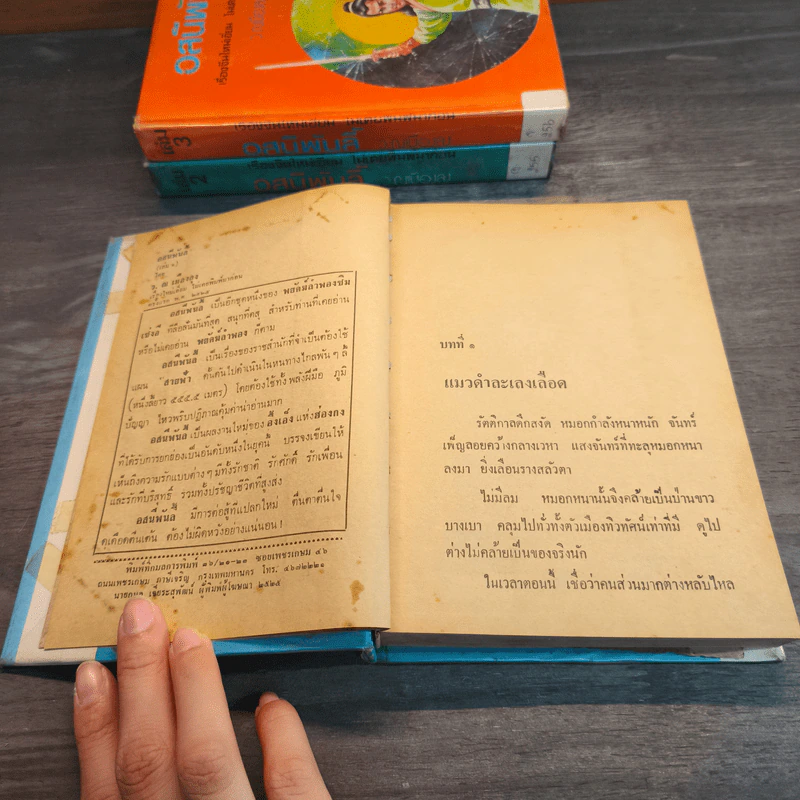 อสนีพันลี้
เรื่องจีนใหม่เอี่ยม
เล่ม 3
อสนีพันลี้
เล่ม 2
อสนีพันลี้
อสนีพันลี้
น. นพรัตน์
อสนีพันลี้ เป็นอีกชุดหนึ่งของ พยัคฆ์ลำพองชิม
เซ่งอี ที่สีสันมันที่สุด สนุกที่สุด สำหรับท่านที่เคยอ่าน
หรือไม่เคยอ่าน พยัคฆ์ลำพอง ก็ตาม
อสนีพันลี้ เป็นเรื่องของราชสำนักที่จำเป็นต้องใช้
แผน สายฟ้า ดั้นด้นไปดำเนินในหนทางไกลพัน ๆ ลี้
(หนึ่งลี้ยาว ๕๕๕.๕ เมตร) โดยต้องใช้ทั้ง พลังฝีมือ ภูมิ
ปัญญา ไหวพริบปฏิภาณคุ้มค่าน่าอ่านมาก
อสนีพันลี้ เป็นผลงานใหม่ของ อึ้งเอ็ง แห่งฮ่องกง
ที่ได้รับการยกย่องเป็นอันดับหนึ่งในยุคนี้ บรรจงเขียนให้
เห็นถึงความรักแบบต่าง ๆ มีทั้งรักชาติ รักศักดิ์ รักเพื่อน
และรักที่บริสุทธิ์ รวมทั้งปรัชญาชีวิตที่สูงส่ง
อสนีพันลี้ มีการต่อสู้ที่แปลกใหม่ ตื่นตาตื่นใจ
ดุเดือดตื่นเต้น ต้องไม่ผิดหวังอย่างแน่นอน !
พิมพ์ที่กมลการพิมพ์ ๑๖/๒๑-๒๓ ซอยเพชรเกษม ๔๖
ถนนเพชรเกษม ภาษีเจริญ กรุงเทพมหานคร โทร. ๔๖๗๒๒๒๑
ผู้พิมพ์ผู้โฆษณา ๒๕๒๕
บทที่ ๑
แมวดำละเลงเลือด
รัตติกาลดึกสงัด หมอกกำลังหนาหนัก จันทร์
เพ็ญลอยคว้างกลางเวหา แสงจันทร์ที่ทะลุหมอกหนา
ลงมา ยิ่งเลือนรางสลัวตา
ไม่มีลม หมอกหนานั้นจึงคล้ายเป็นม่านขาว
บางเบา คลุมไปทั่วทั้งตัวเมืองทิวทัศน์เท่าที่มี ดูไป
ต่างไม่คล้ายเป็นของจริงนัก
ในเวลาตอนนี้ เชื่อว่าคนส่วนมากต่างหลับใหล